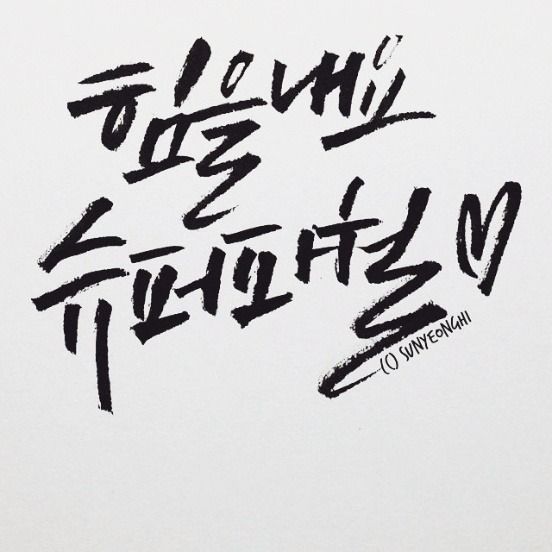 힘을내요
슈퍼파월♡
(C) SUNYEONGHI